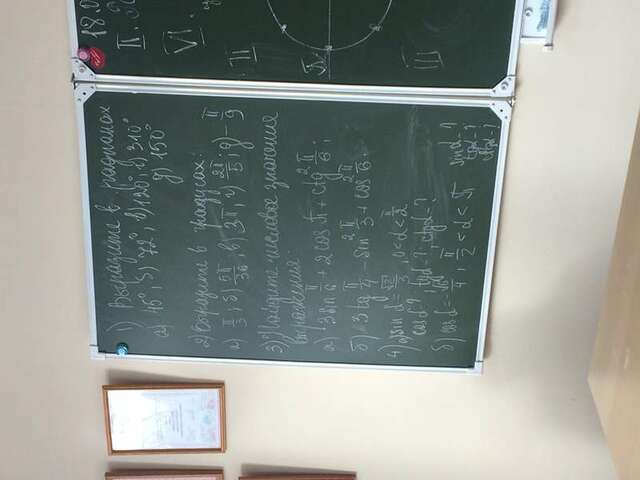 1) Выразите в радианах
а) 45°, б) 72°, в) 120°, г) 310°
д) 150°
2) Выразите в градусах:
а) π/3; б) 5π/36, в) 3π, г) 2π/5; д) -π/9
3) Найдите числовое значение
выражения:
а) 3 sin π/6 + 2 cos π + ctg² π/6;
б) 3 tg π/4 - sin² π/3 + cos² π/6.
4) а) sin α = √2/3, 0 < α < π/2
cos α-?, tg α-?; ctg α-?
б) cos α = - /4, π/2 < α < π
sin α-?
tg α-?
ctg α-?
18.0
II.
VI
II
π
III